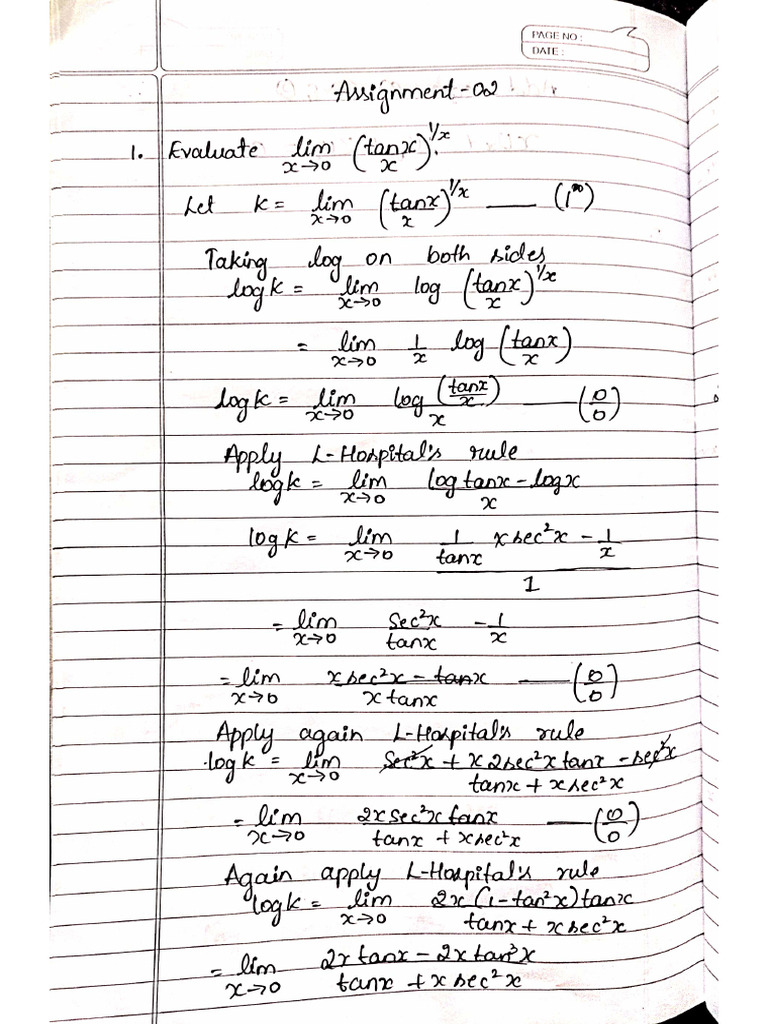 PAGE NO :
DATE :
Assignment-02
1. Evaluate lim x→0 (tanx/x)^1/x.
Let K = lim x→0 (tanx/x)^1/x —— (1^∞)
Taking log on both sides
logK = lim x→0 log (tanx/x)^1/x
= lim x→0 1/x log (tanx/x)
logK = lim x→0 log (tanx/x)/x —— (0/0)
Apply L-Hospital's rule
logK = lim x→0 (logtanx - logx)/x
logK = lim x→0 (1/tanx x sec²x - 1/x)/1
= lim x→0 sec²x/tanx - 1/x
= lim x→0 (x sec²x - tanx)/(x tanx) —— (0/0)
Apply again L-Hospital's rule
logK = lim x→0 (sec²x + x 2sec²x tanx - sec²x)/(tanx + x sec²x)
= lim x→0 (2x sec²x tanx)/(tanx + x sec²x) —— (0/0)
Again apply L-Hospital's rule
logK = lim x→0 (2x (1-tan²x) tanx)/(tanx + x sec²x)
= lim x→0 (2x tanx - 2x tan³x)/(tanx + x sec²x)